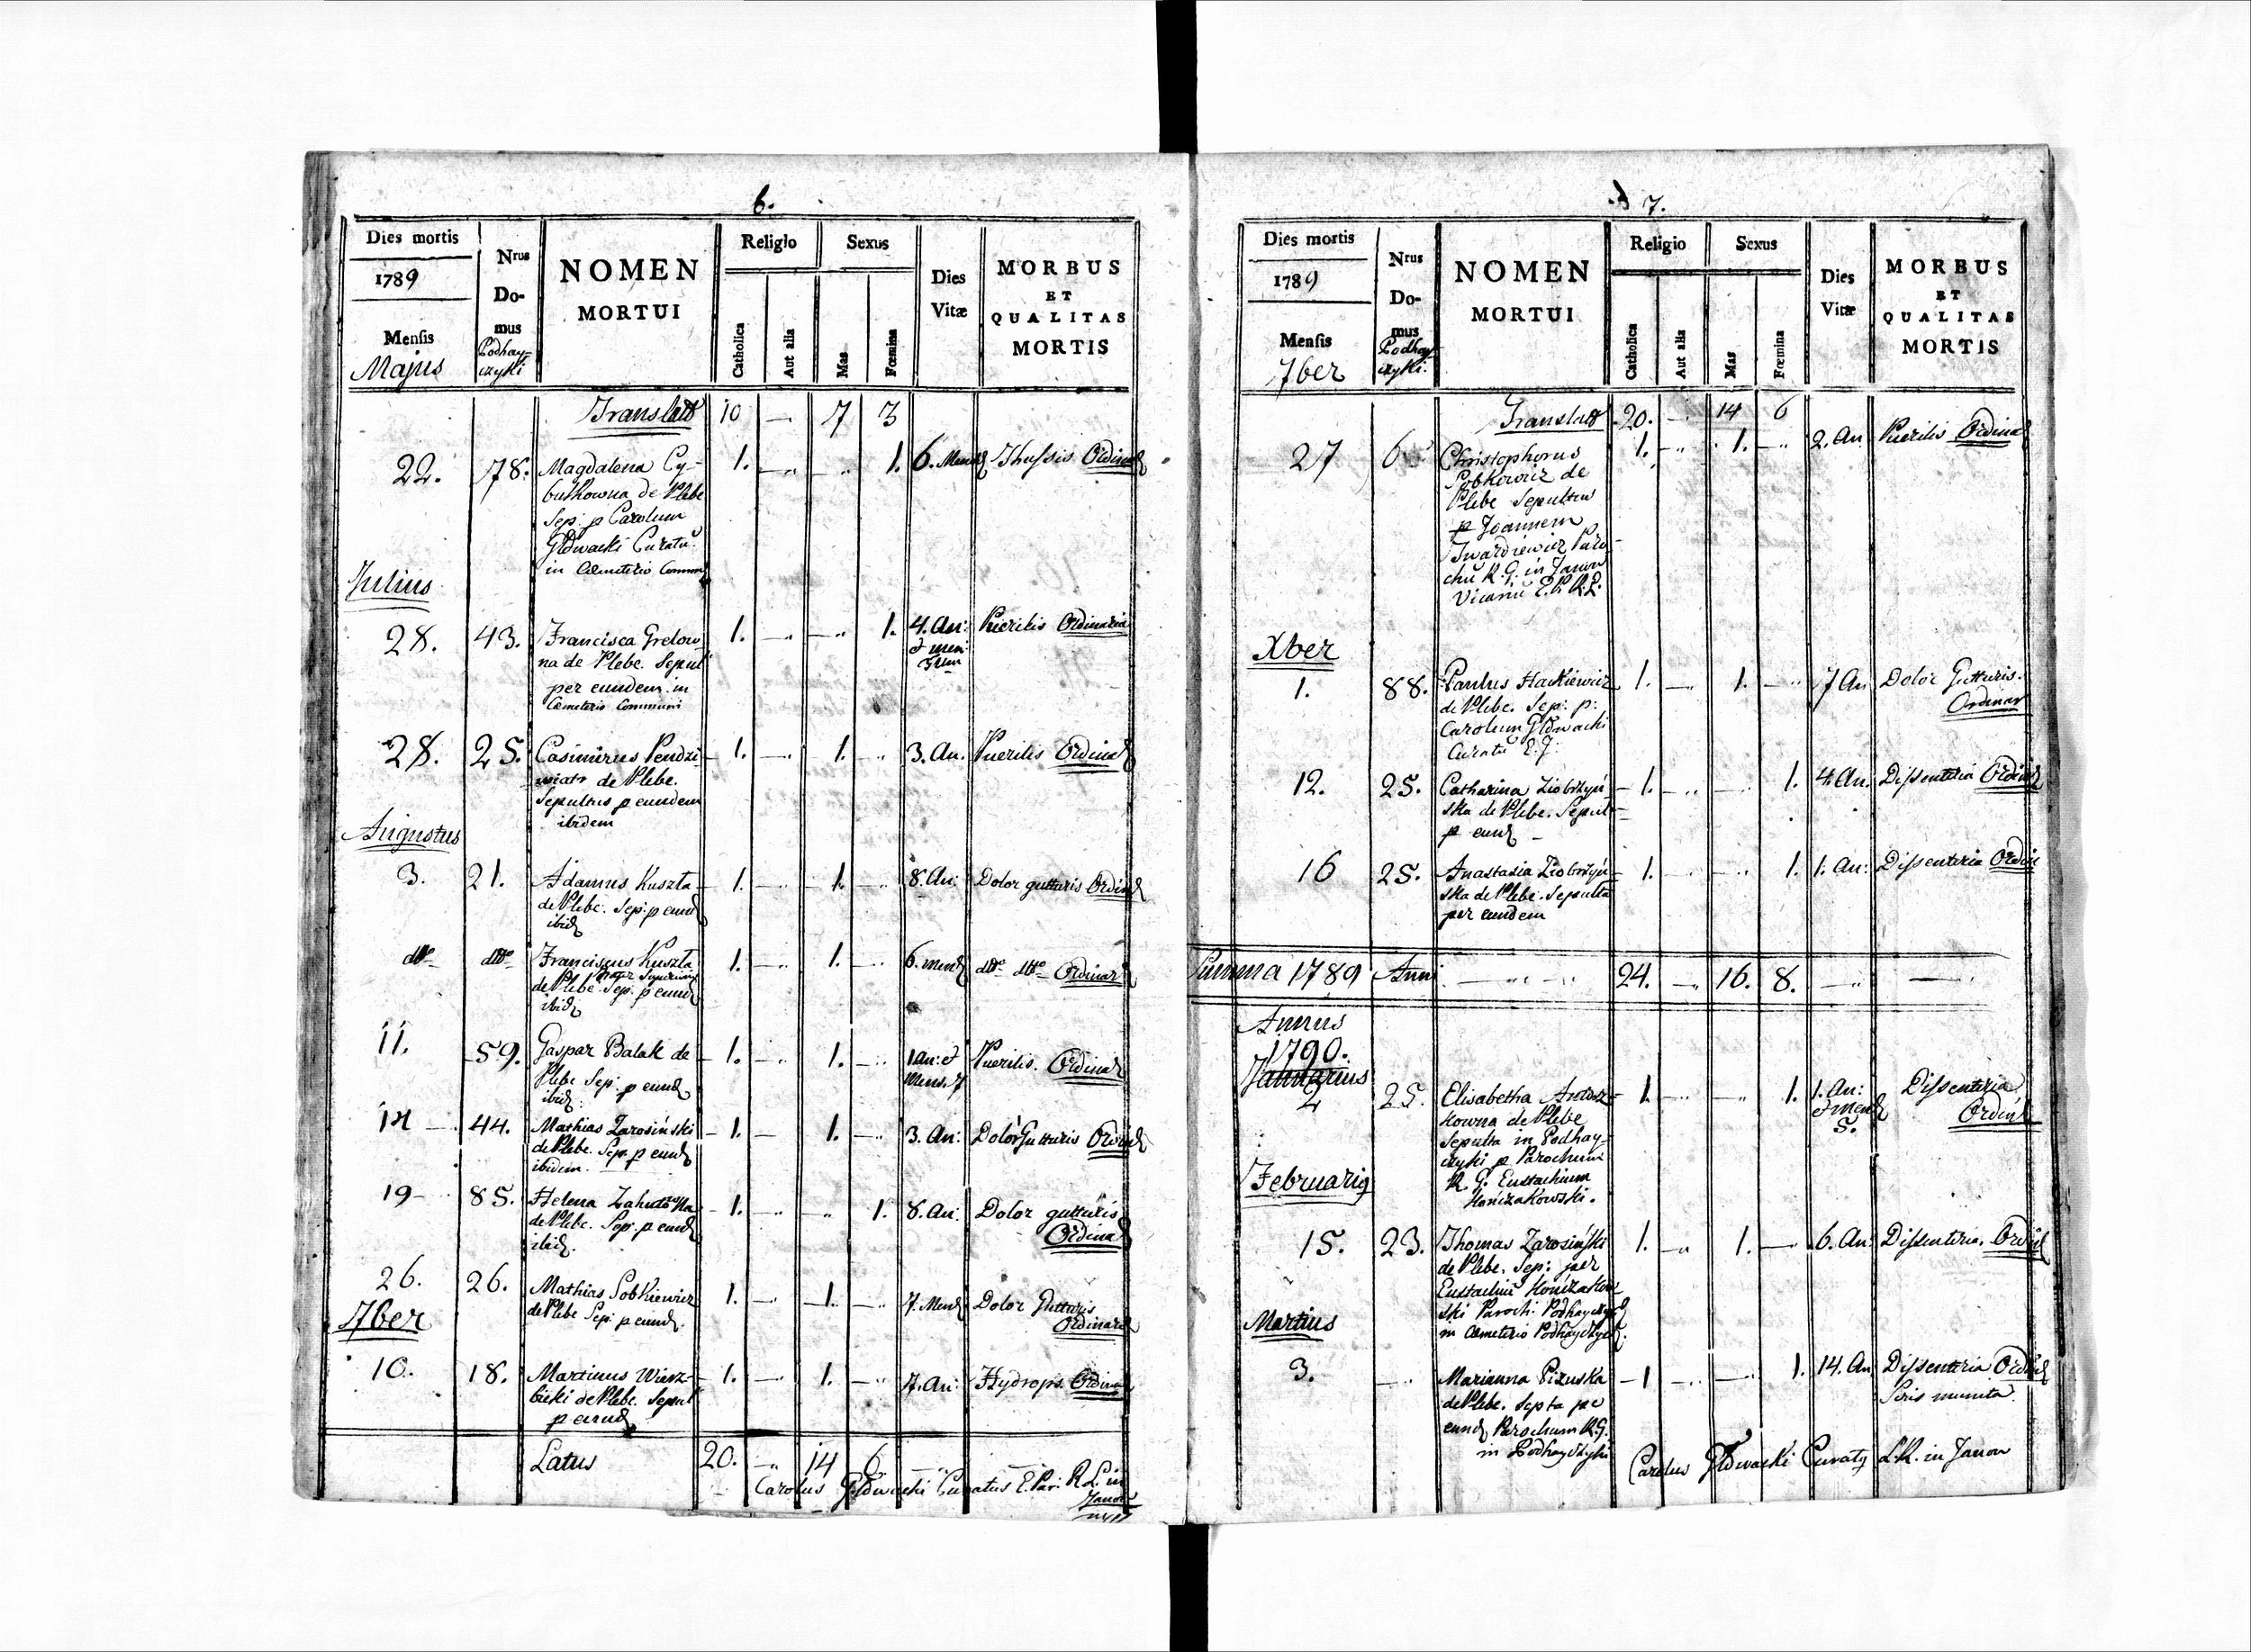 6.
Dies mortis
1789
Mensis
Majus
Nrus
Do-
mus
Podhay-
czyki
NOMEN
MORTUI
Religio
Catholica
Aut alia
Sexus
Mas
Fœmina
Dies
Vitæ
MORBUS
ET
QUALITAS
MORTIS
Translatt 10 — 7 3
22. 78. Magdalena Cy- 1. — „ 1. 6. Mens Thussis Ordinar
bulkowna de Plebe
Sep: p Carolum
Głowacki Curatu
in Cæmeterio Commun
Julius
28. 43. Francisca Grelow- 1. — — 1. 4. An: Puerilis Ordinaria
na de Plebe. Sepul
per eundem in
Cæmeterio Communi
28. 25. Casimirus Pendzi- 1. — 1. — 3. An. Puerilis Ordinar
wiatr de Plebe.
Sepultus p eundem
ibidem
Augustus
3. 21. Adamus Kuszta 1. — 1. — 8. An: Dolor gutturis Ordinar
de Plebe. Sep: p eund
ibid
dtto dtto Franciscus Kuszta 1. — 1. — 6. mens dtto dtto Ordinar
de Plebe. Sep. p eund
ibid
11. 59. Gaspar Balak de 1. — 1. — 1 an: et Puerilis. Ordinar
Plebe Sep: p eund mens. 7
ibid:
14 44. Mathias Zarosiński 1. — 1. — 3. An: Dolor Gutturis Ordin
de Plebe. Sep. p eund
ibidem.
19 85. Helena 1. — „ 1. 8. An: Dolor gutturis
de Plebe. Sep. p eund Ordinar
ibid.
26. 26. Mathias Sobkiewicz 1. — 1. — 7. Mens Dolor Gutturis
de Plebe Sep: p eund. Ordinar
7ber
10. 18. Martinus Wierz- 1. — 1. — 7. An: Hydrops. Ordinar
bicki de Plebe. Sepul
p eund
Latus 20. — 14 6
Carolus Głowacki Curatus E. Par: R. L. in
Janow
7.
Dies mortis
1789
Mensis
7ber
Nrus
Do-
mus
Podhay-
czyki.
NOMEN
MORTUI
Religio
Catholica
Aut alia
Sexus
Mas
Fœmina
Dies
Vitæ
MORBUS
ET
QUALITAS
MORTIS
Translatt 20. — 14 6
27 6 Christophorus 1. — 1. — 2. An Puerilis Ordinar
Sobkowicz de
Plebe Sepultus
p Joannem
Twardiewicz Paro-
chu R. G. in Janow
Vicariu E. P. R. L.
Xber
1. 88. Paulus Hackiewicz 1. — 1. — 7 An Dolor Gutturis.
de Plebe. Sep: p: Ordinar
Carolum Głowacki
Curatu
12. 25. Catharina Ziobrzyń- 1. — — 1. 4. An. Dissenteria Ordinar
ska de Plebe. Sepul
p eund
16 25. Anastasia Ziobrzyń- 1. — — 1. 1. An: Dissenteria Ordin
ska de Plebe. Sepulta
per eundem
Summa 1789 Anni 24. — 16. 8. — —
Annus
1790.
Januarius
2 25. Elisabetha 1. — „ 1. 1. An: Dissenteria
kowna de Plebe et mens Ordin
Sepulta in Podhay- 5.
czyki p Parochum
R. G. Eustachium
Kończakowski.
Februariq
15. 23. Thomas Zarosiński 1. — 1. — 6. An Dissenteria. Ordin
de Plebe. Sep: per
Eustachiu Kończakow-
ski Paroch: Podhayczyk
in Cæmeterio Podhayczyk.
Martius
3. — Marianna Pizuska 1 — — 1. 14. An Dissenteria Ordin
de Plebe. Septa per
eund Parochum R. G.
in Podhayczyki
Carolus Głowacki Curatq L. R. in Janow